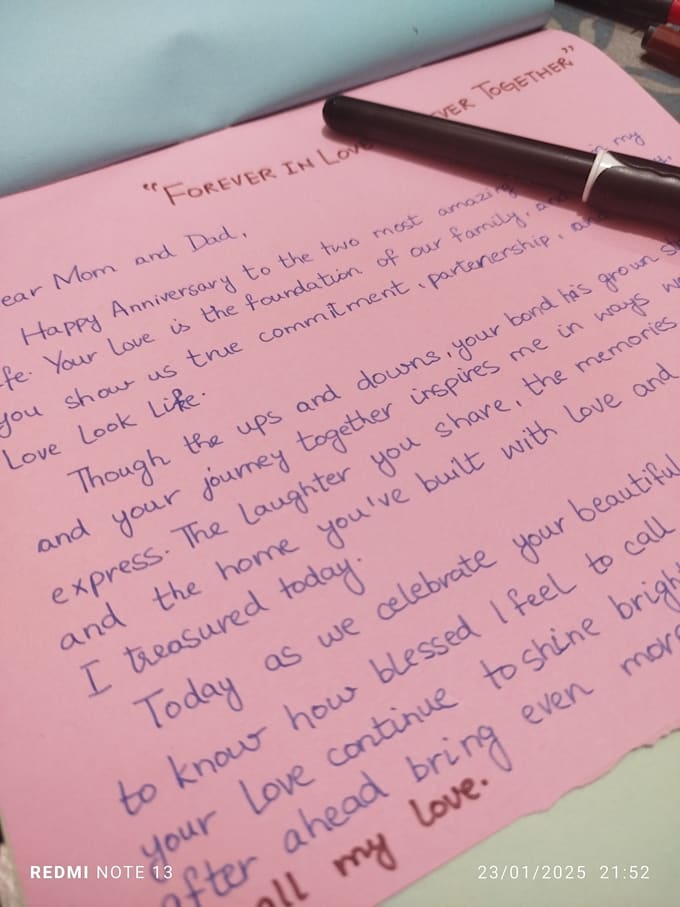 "FOREVER IN LOVE EVER TOGETHER"
ear Mom and Dad,
Happy Anniversary to the two most amazing in my
fe. Your Love is the foundation of our family, and
you show us true commitment, partenership, and
Love Look Like.
Though the ups and downs, your bond his grown
and your journey together inspires me in ways
express. The Laughter you share, the memories
and the home you've built with Love and
I treasured today.
Today as we celebrate your beautiful
to know how blessed I feel to call
your Love continue to shine bright
after ahead bring even more
all my love.
REDMI NOTE 13
23/01/2025 21:52